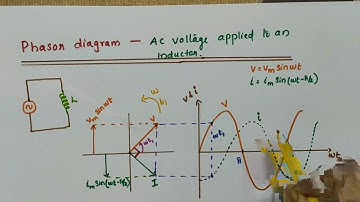 Phasor diagram – AC voltage applied to an
inductor.
V = Vm sin wt
i = im sin(wt-π/2)
L
Vm sin wt
w
t1
V
wt1
I
im sin(wt-π/2)
V & i
V
i
wt1
π
wt